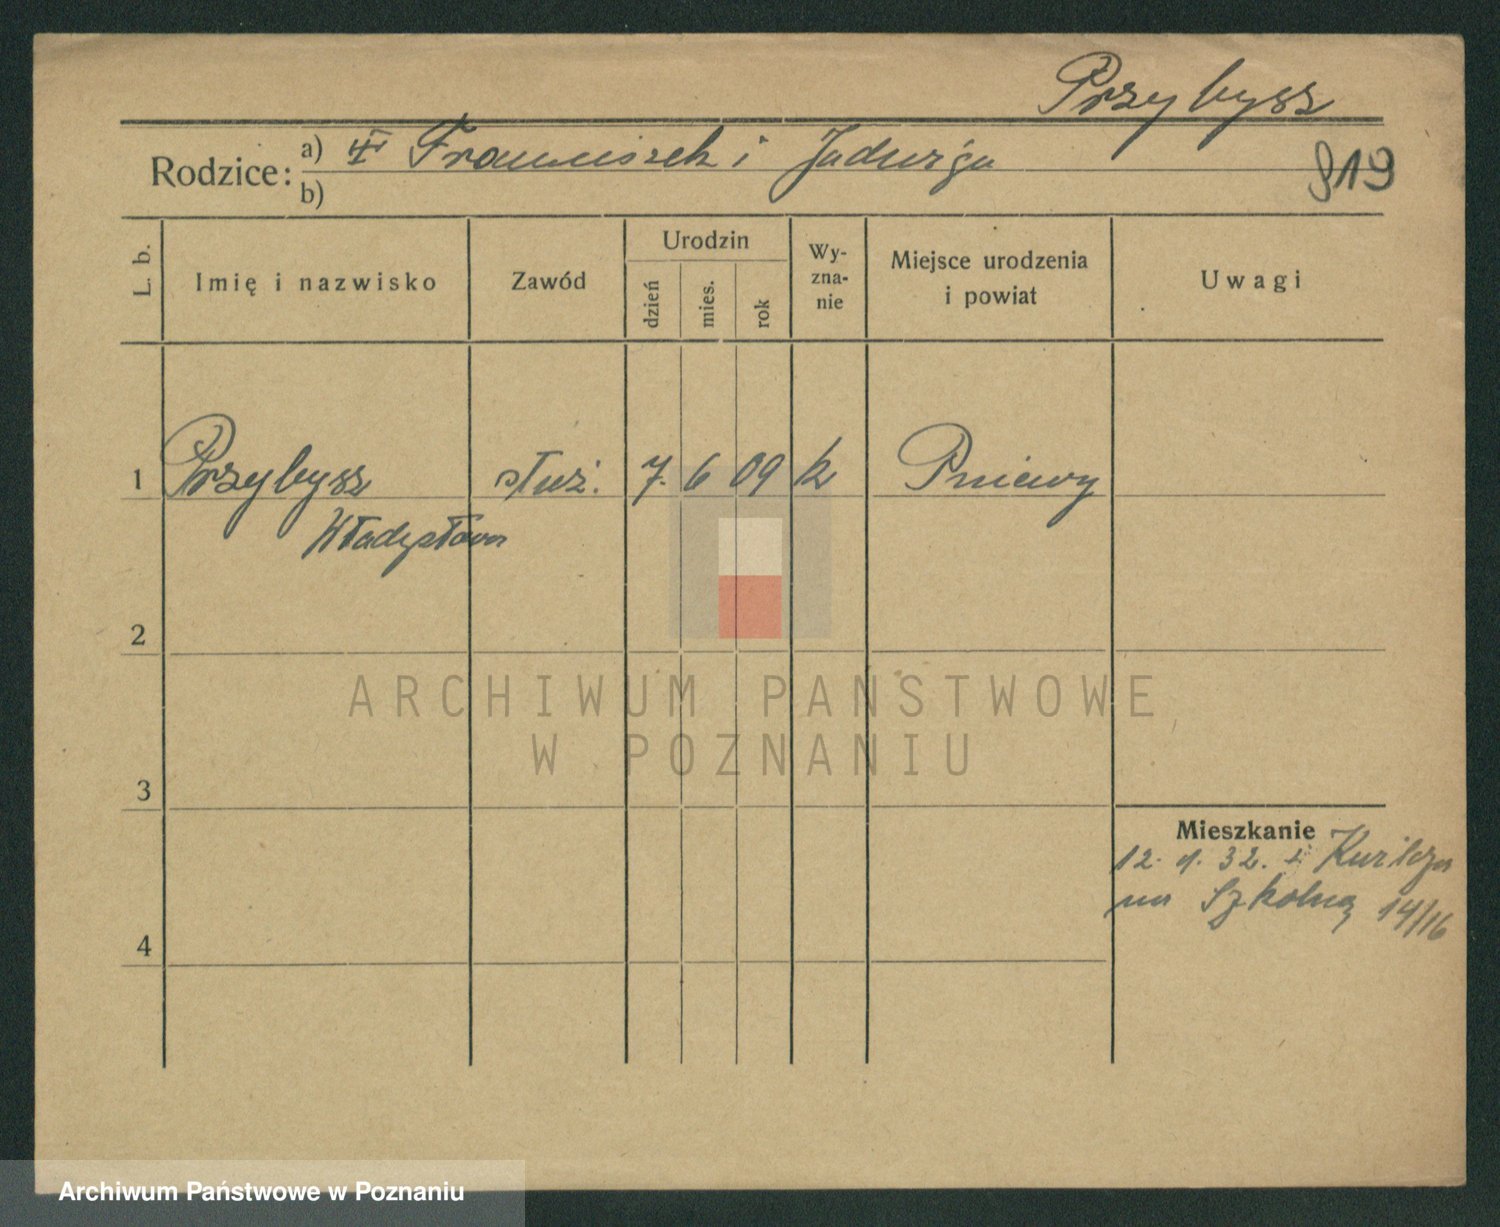 Przybysz
819
Rodzice: a) Franciszek i Jadwiga
b)
L. b.
Imię i nazwisko
Zawód
Urodzin
dzień
mies.
rok
Wy-
zna-
nie
Miejsce urodzenia
i powiat
Uwagi
1 Przybysz służ. 7. 6 09 k Pniewy
Władysława
2
3
4
Mieszkanie
12. 1. 32. z
na Szkolną 14/16
ARCHIWUM PAŃSTWOWE
W POZNANIU
Archiwum Państwowe w Poznaniu